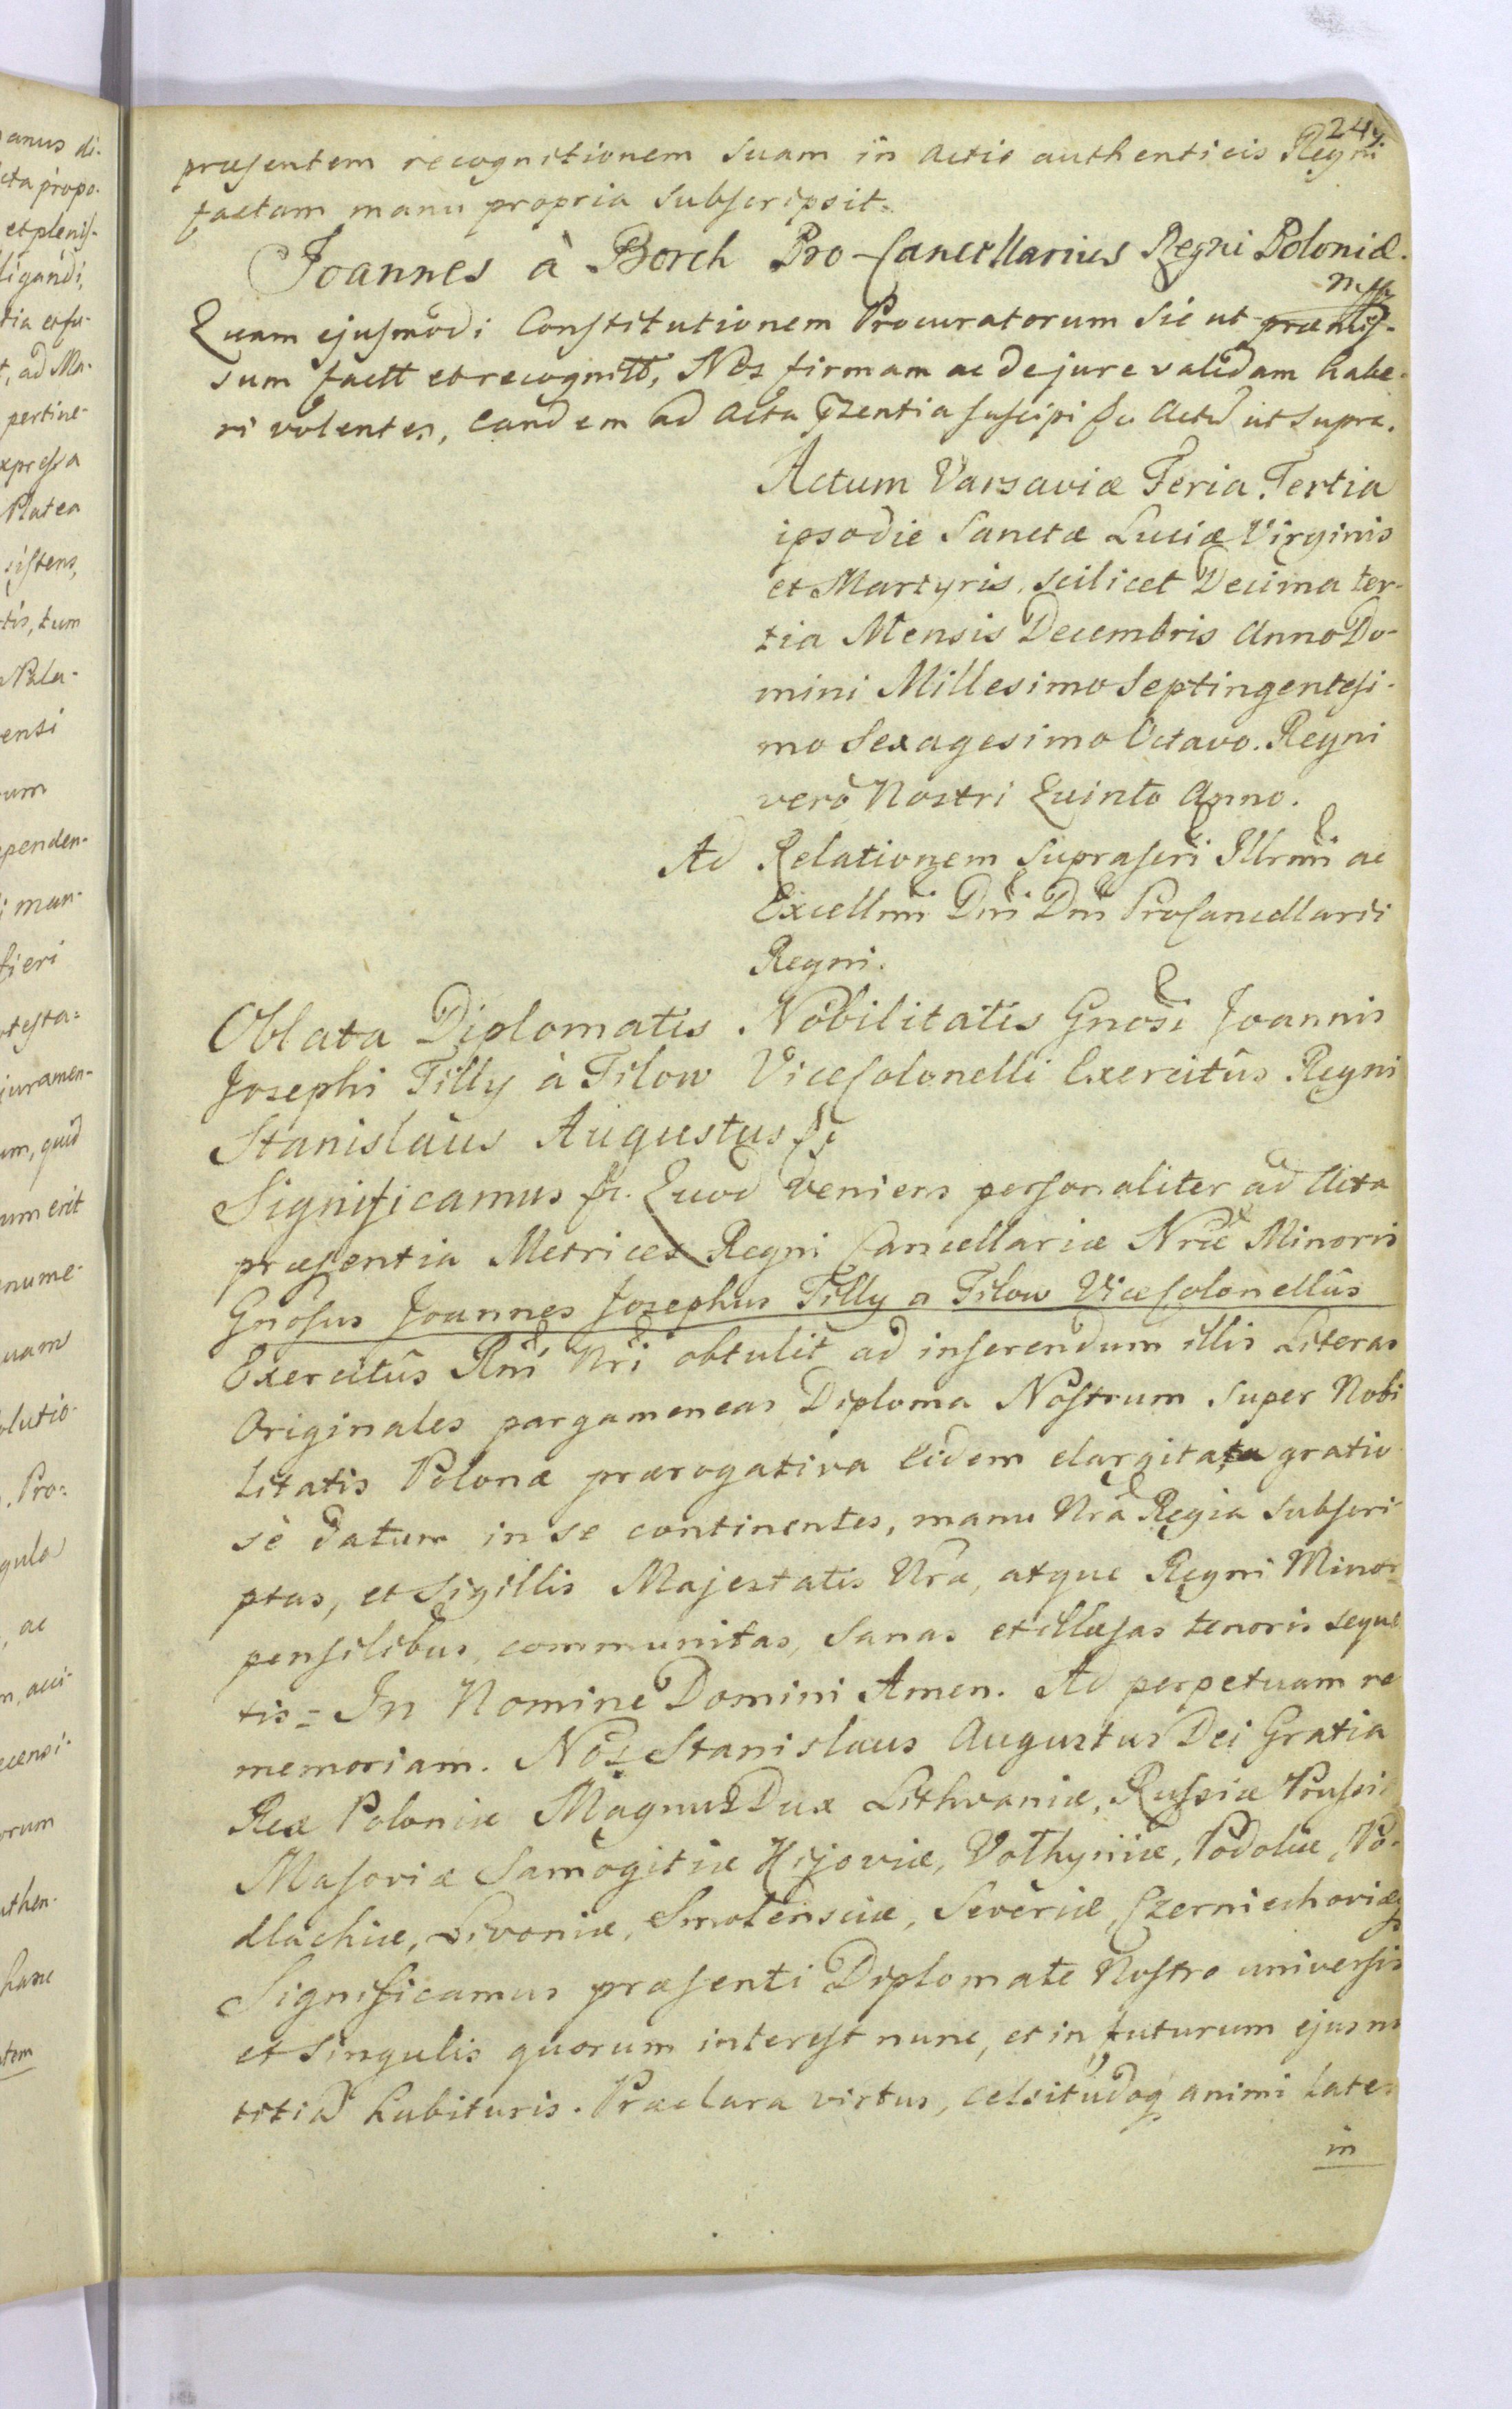 247
præsentem recognitionem suam in Actis authenticis Regni
factam manu propria subscripsit.
Joannes à Borch Pro-Cancellarius Regni Poloniæ.
mp
Quam ejusmodi Constitutionem Procuratorum sic ut præmis-
sum factt et recognitt, Nos firmam ac de jure validam habe-
ri volentes, eandem ad Acta pzentia suscipi &c Actũ ut supra.
Actum Varsaviæ Feria Tertia
ipso die Sanctæ Luciæ Virginis
et Martyris, scilicet Decima ter-
tia Mensis Decembris Anno Do-
mini Millesimo Septingentesi-
mo Sexagesimo Octavo. Regni
verò Nostri Quinto Anno.
Ad Relationem suprascri Illrmi ac
Excellmi Dni Dni ProCancellarii
Regni.
Oblata Diplomatis Nobilitatis Gnosi Joannis
Josephi Tilly à Tilow ViceColonelli Exercitûs Regni
Stanislaus Augustus &c
Significamus &c. Quod veniens personaliter ad Acta
præsentia Metrices Regni Cancellariæ Nræ Minoris
Gnosus Joannes Josephus Tilly a Tilow ViceColonellûs
Exercitûs Rni Nri obtulit ad inserendum illis Literas
Originales pargameneas Diploma Nostrum super Nobi
litatis Polonæ prærogativa Eidem elargitata gratio
sè datum in se continentes, manu Nrã Regia subscri-
ptas, et Sigillis Majestatis Nræ, atque Regni Minor
pensilibus communitas, sanas et illæsas tenoris seque
tis = In Nomine Domini Amen. Ad perpetuam re
memoriam. Nos Stanislaus Augustus Dei Gratia
Rex Poloniæ Magnus Dux Lithvaniæ, Russiæ Prussiæ
Masoviæ Samogitiæ Kijoviæ, Volhyniiæ, Podoliæ, Po-
dlachiæ, Livoniæ, Smolensciæ, Severiæ, Czerniechoviæq
Significamus præsenti Diplomate Nostro universis
et singulis quorum interest nunc, et in futurum ejus no
titiã habituris. Præclara virtus, celsitudoq animi late
in